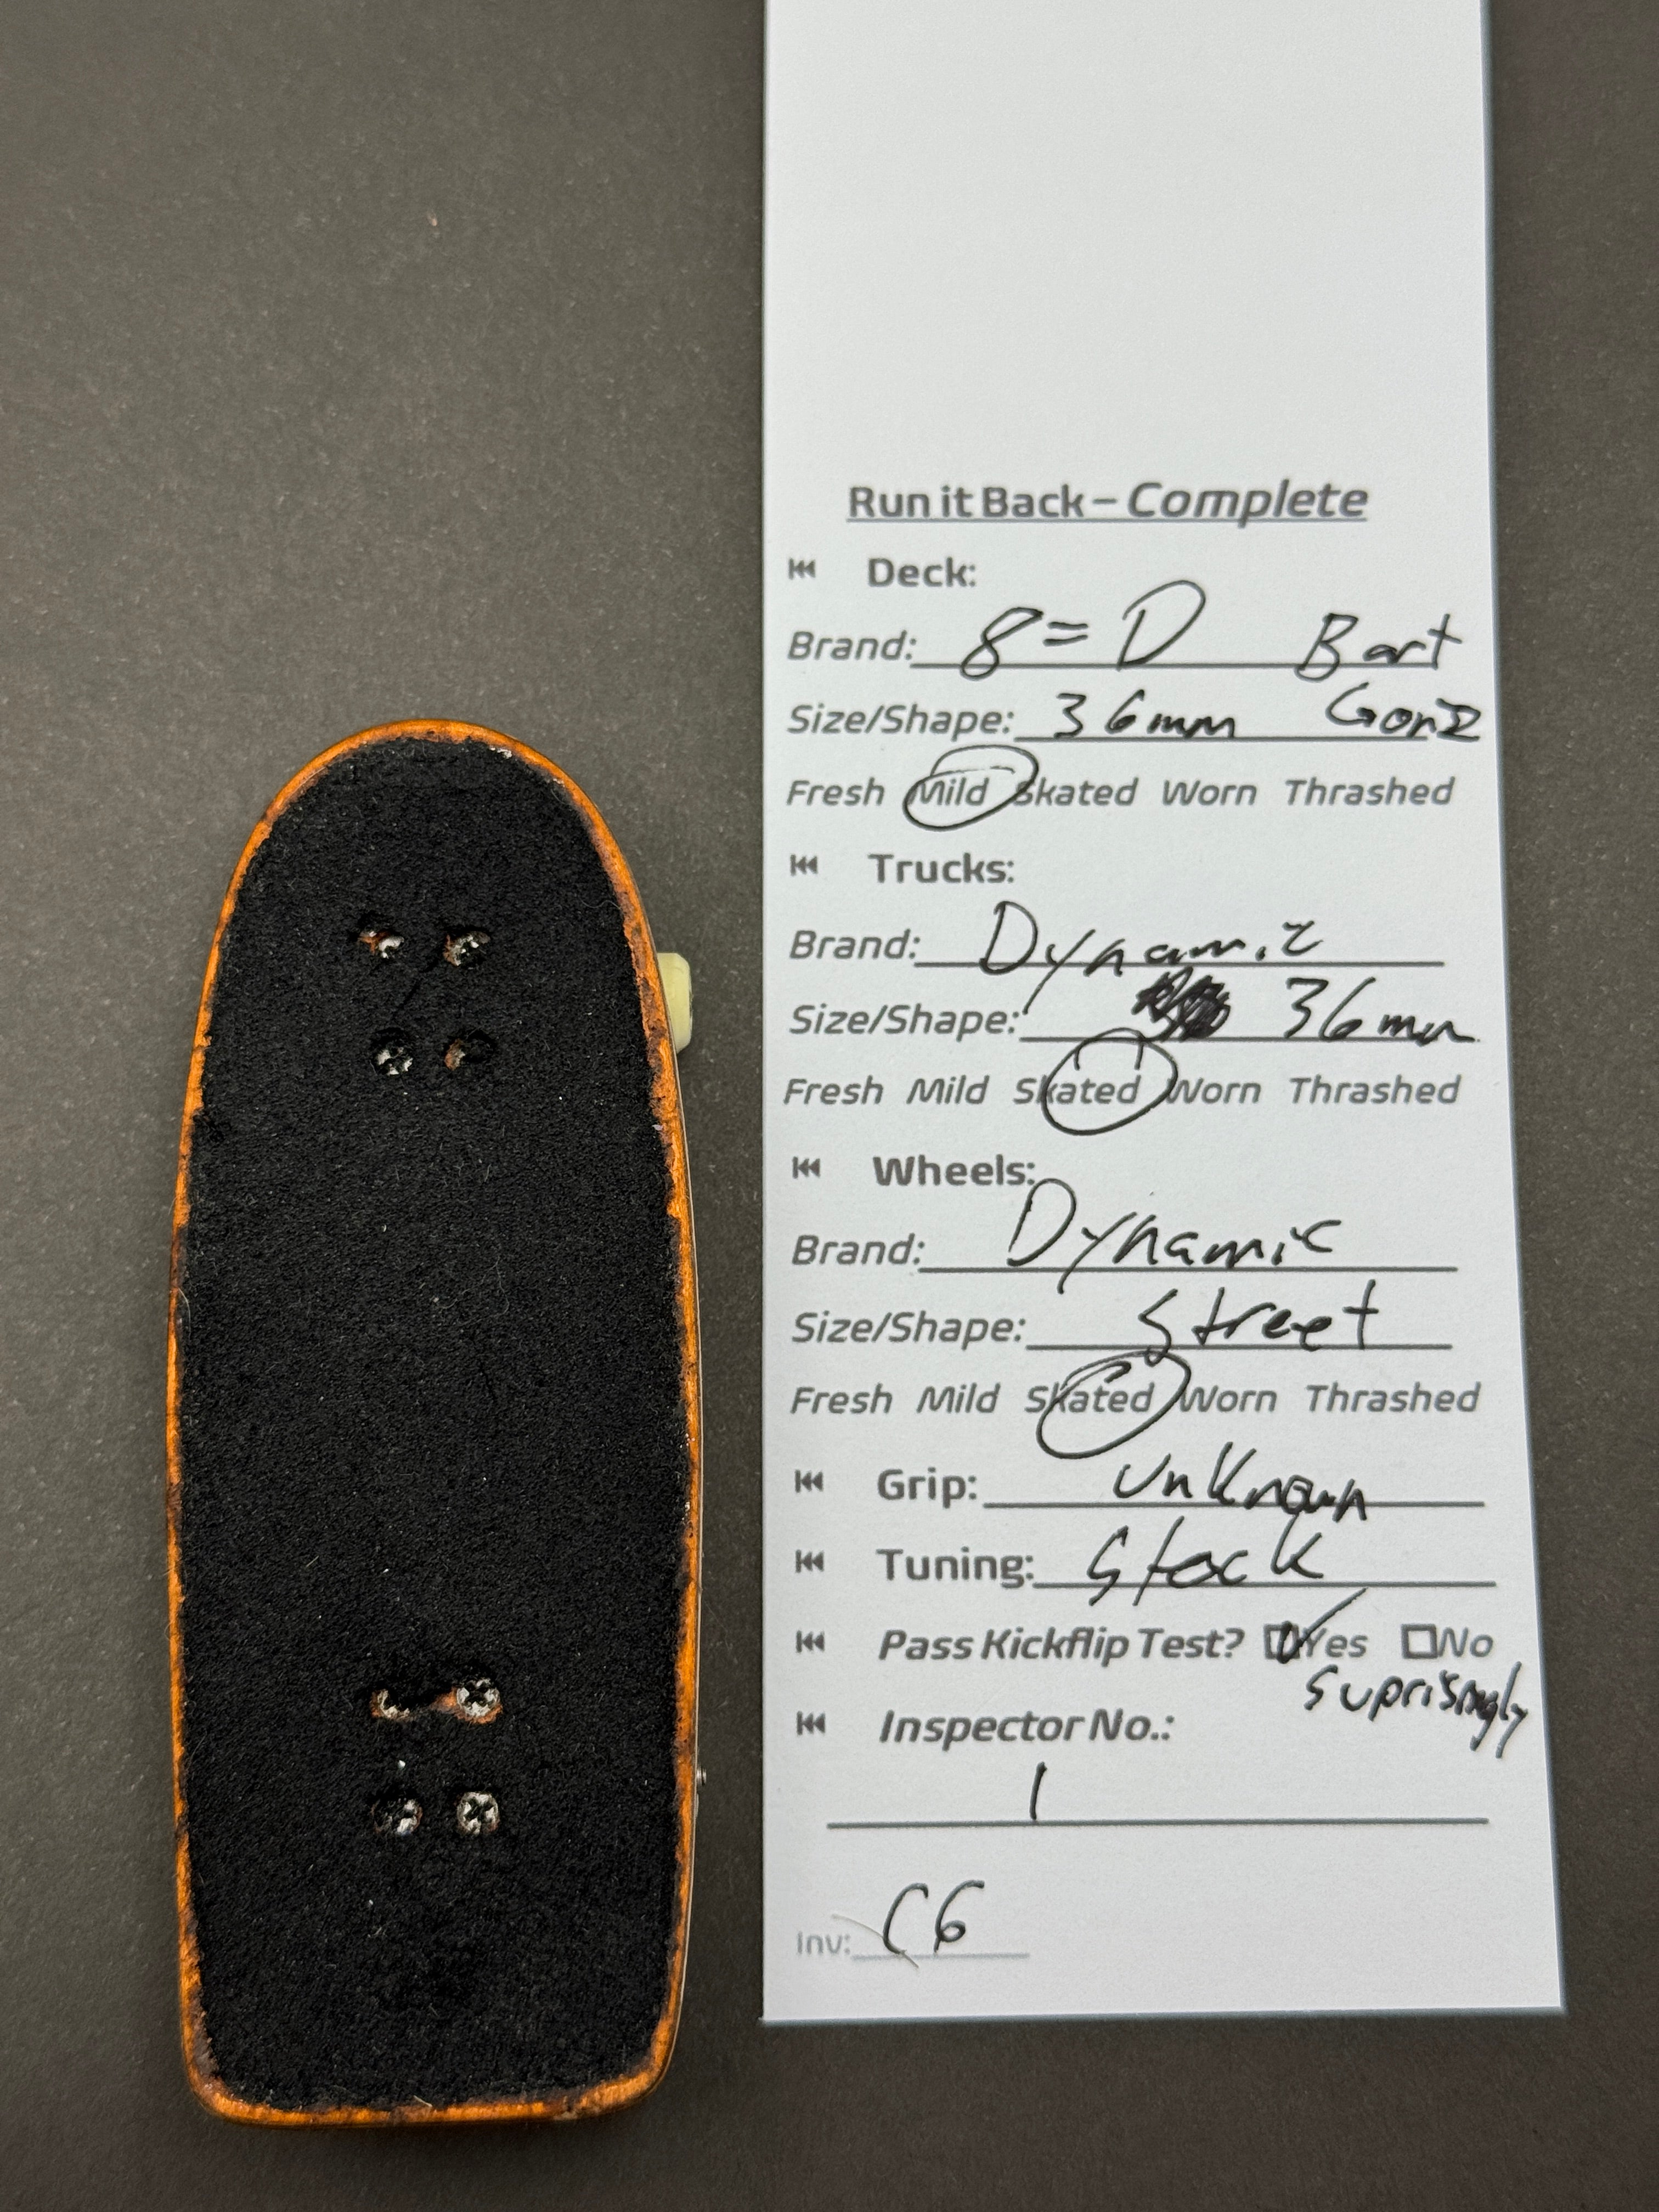 Run it Back – Complete
Deck:
Brand: 8=D Bart
Size/Shape: 36mm Gonz
Fresh Mild Skated Worn Thrashed
Trucks:
Brand: Dynamic
Size/Shape: 36mm
Fresh Mild Skated Worn Thrashed
Wheels:
Brand: Dynamic
Size/Shape: Street
Fresh Mild Skated Worn Thrashed
Grip: Unknown
Tuning: Stock
Pass Kickflip Test? Yes No
Suprisingly
Inspector No.:
1
Inv: C6